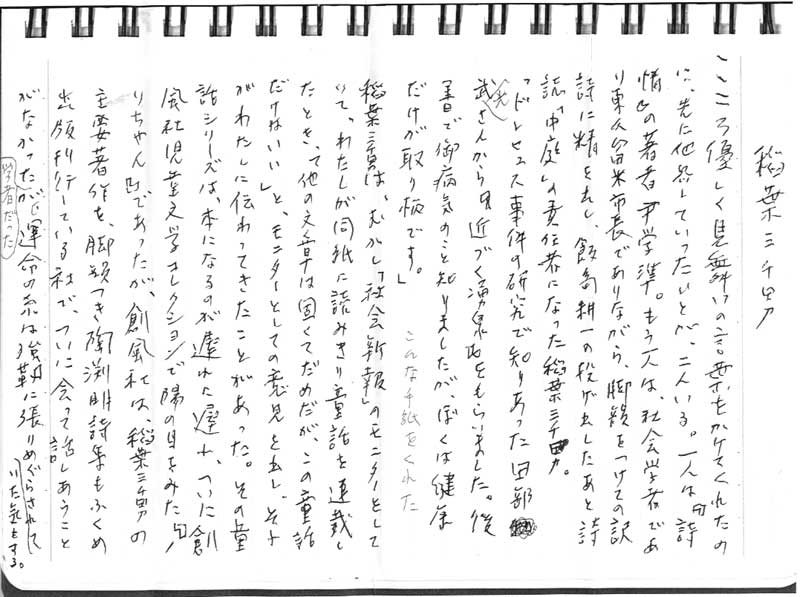 稲葉三千男
こころ優しく見舞いの言葉をかけてくれたの
に、先に他界していったひとが、二人いる。一人は『詩
情』の著者 尹学準。もう一人は、社会学者であ
り東久留米市長でありながら、脚韻をつけての訳
詩に精を出し、飯島耕一の投げ出したあと詩
誌「中庭」の責任者になった稲葉三千男。
「ドレヒュス事件の研究で知りあった田部
武光さんから『近づく湧泉』をもらいました。後
書で御病気のこと知りましたが、ぼくは健康
だけが取り柄です。」 こんな手紙をくれた
稲葉三千男は、むかし「社会新報」のモニターとして
いて、わたしが同紙に読みきり童話を連載し
たとき、「他の文章は固くてだめだが、この童話
だけはいい」と、モニターとしての意見を出し、それ
がわたしに伝わってきたことがあった。その童
話シリーズは、本になるのが遅れに遅れ、ついに創
風社児童文学コレクションで陽の目をみた『
りちゃん』であったが、創風社は、稲葉三千男の
主要著作を、脚韻つき陶渕明詩集もふくめ
出版刊行している社で、ついに会って話しあうこと
がなかった学者だったが、運命の糸は強靭に張りめぐらされて
いた気もする。